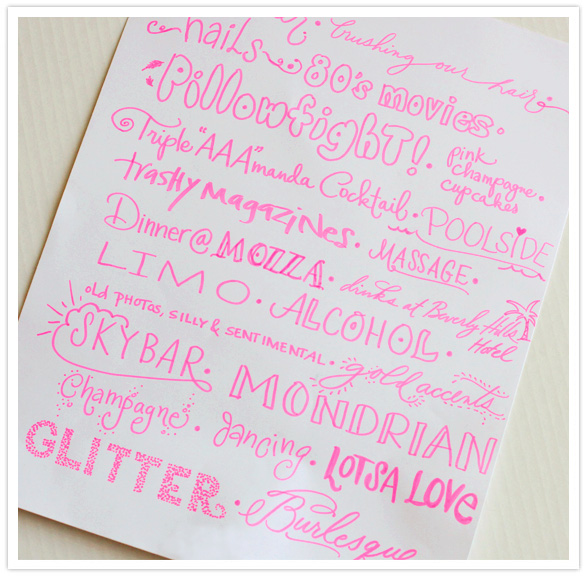 nails. brushing our hair.
80's movies.
Pillowfight! pink champagne. cupcakes
Triple "AAA"manda Cocktail. POOLSIDE
trashy magazines. MASSAGE.
Dinner @ MOZZA. drinks at Beverly Hills Hotel
LIMO. ALCOHOL.
old photos, silly & sentimental. gold accents
SKYBAR. MONDRIAN
Champagne. dancing. LOTSA LOVE
GLITTER. Burlesque